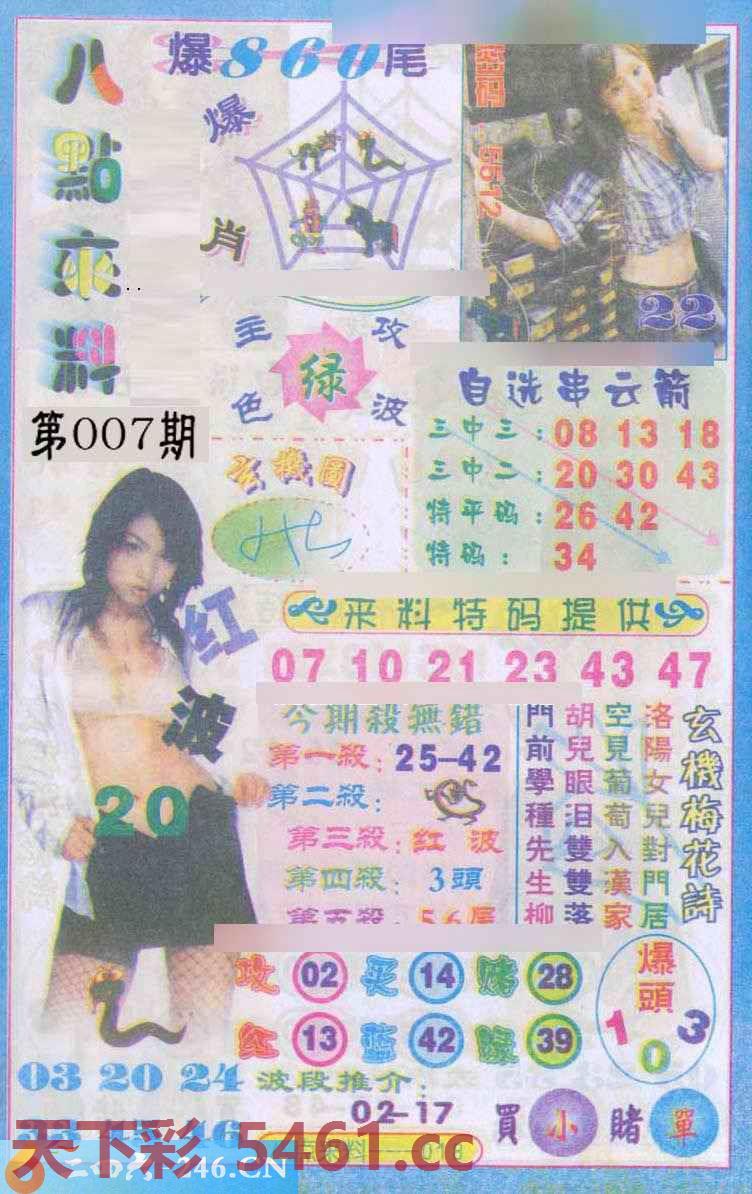 爆860尾
八點來料
爆肖
密码:5512
22
主攻
绿
色波
第007期
玄機圖
自选串云箭
三中三:08 13 18
三中二:20 30 43
特平码:26 42
特码:34
红波
20
来料特码提供
07 10 21 23 43 47
今期殺無錯
第一殺:25-42
第二殺:
第三殺:红波
第四殺:3頭
第五殺:56尾
玄機梅花詩
洛陽女兒對門居
空見葡萄入漢家
胡兒眼泪雙雙落
門前學種先生柳
攻 02 买 14 赌 28
红 13 蓝 42 绿 39
爆頭
1 0 3
03 20 24
波段推介:
02-17
買小賭單
天下彩 5461.cc
二四六 246.CN